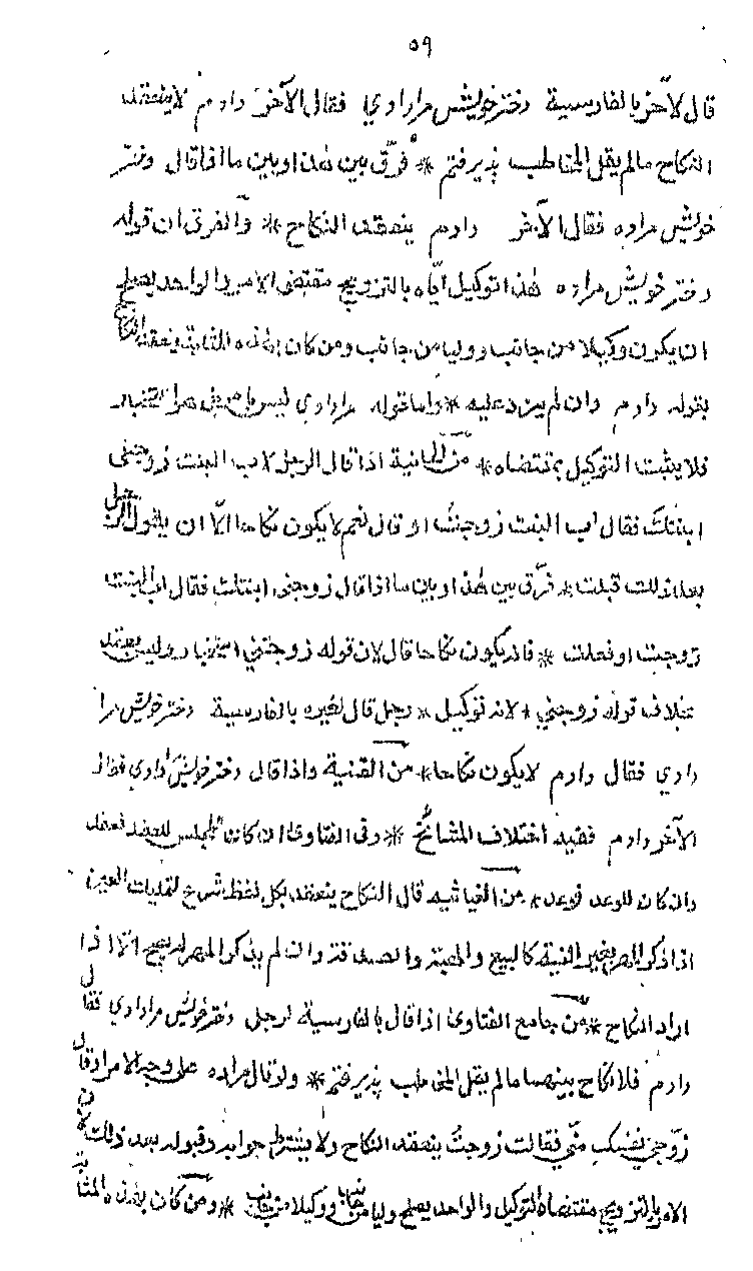 ٥٩
قال لآخر بالفارسية دختر خويش مرا دادي فقال الآخر دادم لا ينعقد
النكاح مالم يقل المخاطب پذيرفتم * فرّق بين هذا وبين ما اذا قال دختر
خويش مرا ده فقال الآخر دادم ينعقد النكاح * والفرق ان قوله
دختر خويش مرا ده هذا توكيل ايّاه بالتزويج مقتضى الامر والواحد يصلح
ان يكون وكيلا من جانب ووليا من جانب ومن كان بهذه المثابة ينعقد النكاح
بقوله دادم وان لم يزد عليه * واما قوله مرا دادي ليس بامر بل هو استخبار
فلا يثبت التوكيل بمقتضاه * من الخانية اذا قال الرجل لاب البنت زوجتني
ابنتك فقال اب البنت زوجت او قال نعم لا يكون نكاحا الّا ان يقول الرجل
بعد ذلك قبلت * فرّق بين هذا وبين ما اذا قال زوجني ابنتك فقال اب البنت
زوجت او فعلت * فانه يكون نكاحا قال لان قوله زوجتني استخبار وليس بعقد
بخلاف قوله زوجني * لانه توكيل * رجل قال لغيره بالفارسية دختر خويش مرا
دادي فقال دادم لا يكون نكاحا * من القنية واذا قال دختر خويش مرا دادي فقال
الآخر دادم ففيه اختلاف المشائخ * وفى الفتاوى ان كان المجلس للعقد فعقد
وان كان للوعد فوعد * من الغياثيه قال النكاح ينعقد بكل لفظ شرع لتمليك العين
اذا ذكر المهر بغير النية كالبيع والهبة والصدقة وان لم يذكر المهر لم يصح الّا اذا
اراد النكاح * من جامع الفتاوى اذا قال بالفارسية لرجل دختر خويش مرا دادي فقال
دادم فلا نكاح بينهما مالم يقل المخاطب پذيرفتم * ولو قال مرا ده على وجه الامر او قال
زوّجي نفسك منّي فقالت زوجتُ ينعقد النكاح ولا يشترط جوابه وقبوله بعد ذلك لان
الامر بالتزويج مقتضاه التوكيل والواحد يصلح وليا من جانب ووكيلا من جانب * ومن كان بهذه المثابة